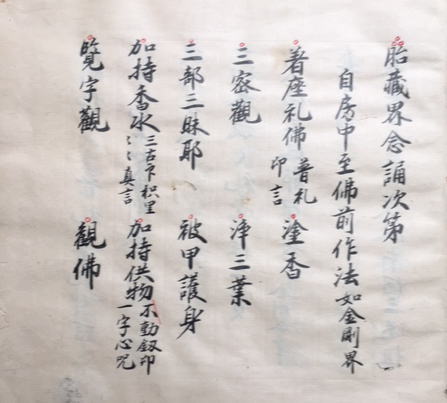 胎藏界念誦次第
自房中至佛前作法如金剛界
著座礼佛 普礼印言 塗香
三密觀 淨三業
三部三昧耶 被甲護身
加持香水 三古印 枳里〻〻真言 加持供物 不動釼印 一字心咒
覽字觀 觀佛